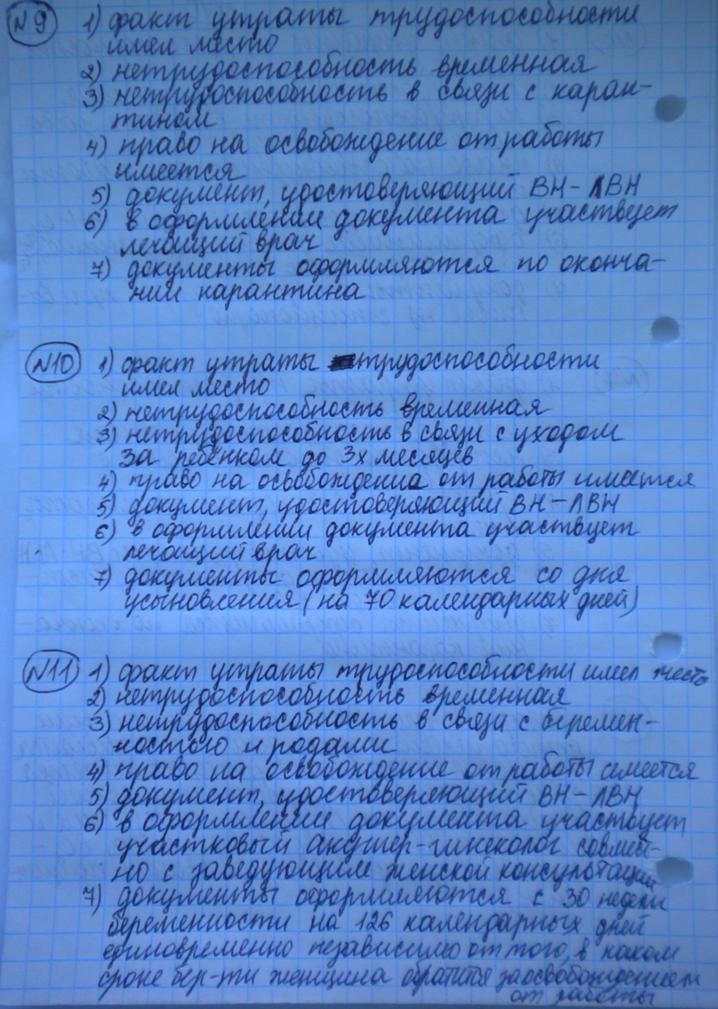 №9 1) факт утраты трудоспособности
имел место
2) нетрудоспособность временная
3) нетрудоспособность в связи с каран-
тином
4) право на освобождение от работы
имеется
5) документ, удостоверяющий ВН – ЛВН
6) в оформлении документа участвует
лечащий врач
7) документы оформляются по оконча-
нии карантина
№10 1) факт утраты трудоспособности
имел место
2) нетрудоспособность временная
3) нетрудоспособность в связи с уходом
за ребёнком до 3х месяцев
4) право на освобождение от работы имеется
5) документ, удостоверяющий ВН – ЛВН
6) в оформлении документа участвует
лечащий врач
7) документы оформляются со дня
усыновления (на 70 календарных дней)
№11 1) факт утраты трудоспособности имел место
2) нетрудоспособность временная
3) нетрудоспособность в связи с беремен-
ностью и родами
4) право на освобождение от работы имеется
5) документ, удостоверяющий ВН – ЛВН
6) в оформлении документа участвует
участковый акушер-гинеколог совмест-
но с заведующим женской консультации
7) документы оформляются с 30 недели
беременности на 126 календарных дней
единовременно независимо от того, в каком
сроке бер-ти женщина обратится за освобождением
от работы